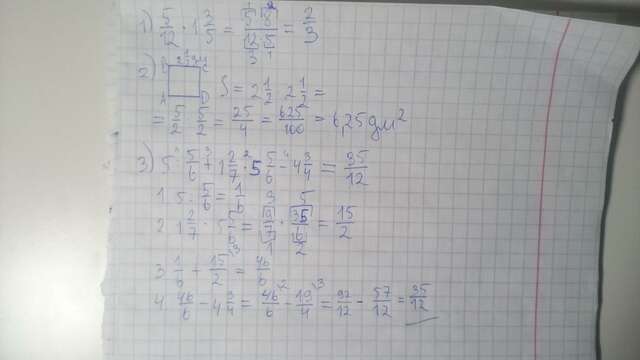 1) 5/12 · 1 3/5 = 5 8 / 12 5 = 2/3
2) B C
A D S = 2 1/2 2 1/2 =
= 5/2 5/2 = 25/4 = 625/100 = 6,25 дм²
3) 5 : 5/6 + 1 2/7 · 5 5/6 - 4 3/4 = 35/12
1 5 : 5/6 = 1/6
2 1 2/7 · 5 5/6 = 9/7 · 35/6 = 15/2
3 1/6 + 15/2 = 46/6
4 46/6 - 4 3/4 = 46/6 - 19/4 = 92/12 - 57/12 = 35/12